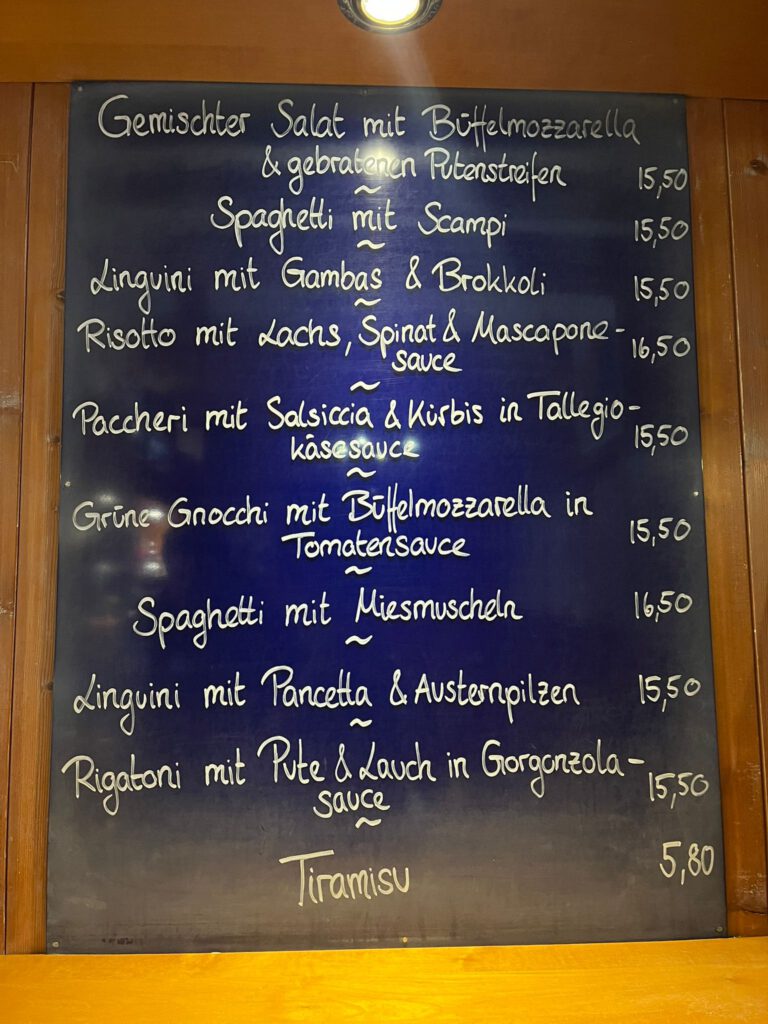 Gemischter Salat mit Büffelmozzarella
& gebratenen Putenstreifen 15,50
~
Spaghetti mit Scampi 15,50
~
Linguini mit Gambas & Brokkoli 15,50
~
Risotto mit Lachs, Spinat & Mascapone-
sauce 16,50
~
Paccheri mit Salsiccia & Kürbis in Tallegio-
käsesauce 15,50
~
Grüne Gnocchi mit Büffelmozzarella in
Tomatensauce 15,50
~
Spaghetti mit Miesmuscheln 16,50
~
Linguini mit Pancetta & Austernpilzen 15,50
~
Rigatoni mit Pute & Lauch in Gorgonzola-
sauce 15,50
~
Tiramisu 5,80